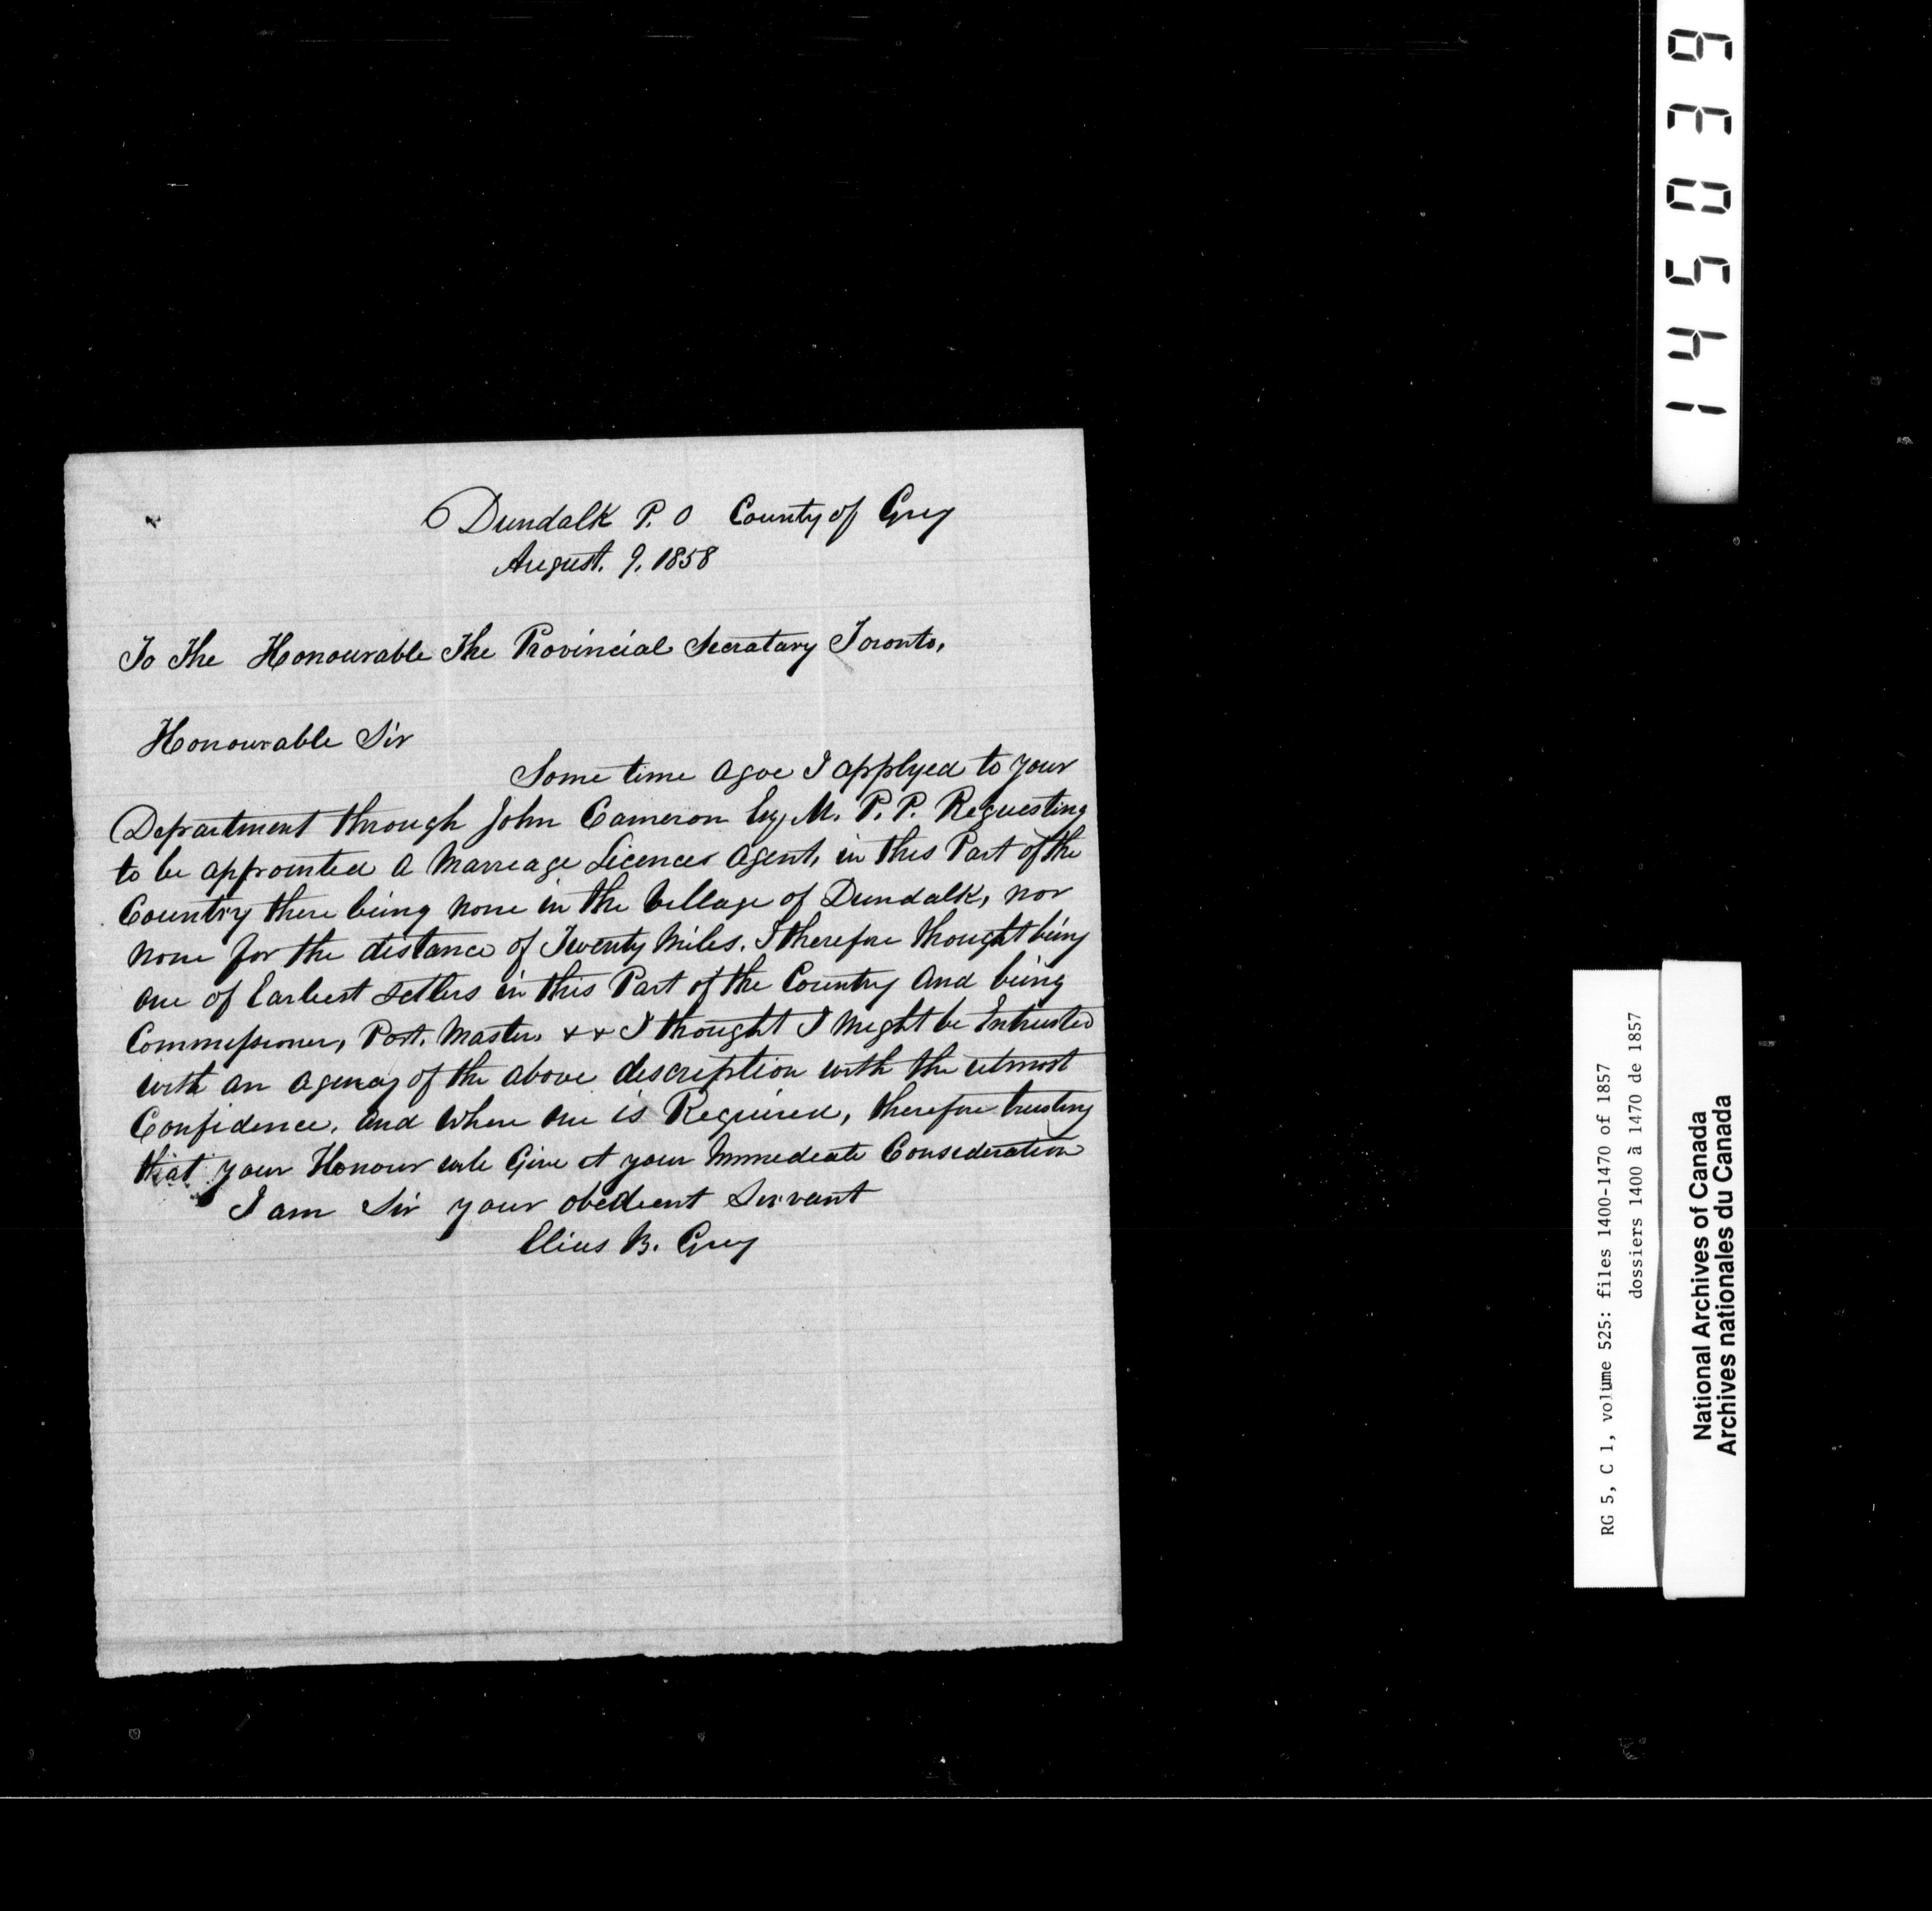 Dundalk P. O County of Grey
August. 9. 1858
To The Honourable The Provincial Secratary Toronto,
Honourable Sir
Some time agoe I applyed to your
Department through John Cameron Esq, M. P. P. Requesting
to be appointed a Marreage Licences Agent, in this Part of the
Country there being none in the Village of Dundalk, nor
none for the distance of Twenty Miles. I therefore thought being
one of Earliest Setlers in this Part of the Country and being
Commissioner, Post. Master, ++ I thought I Might be Intrusted
with an agency of the above description with the utmost
Confidence, and where one is Required, therefore trusting
that your Honour wile Give it your Immediate Consideration
I am Sir your obedient Servant
Elias B. Grey
145039
RG 5, C 1, volume 525: files 1400-1470 of 1857
dossiers 1400 à 1470 de 1857
National Archives of Canada
Archives nationales du Canada